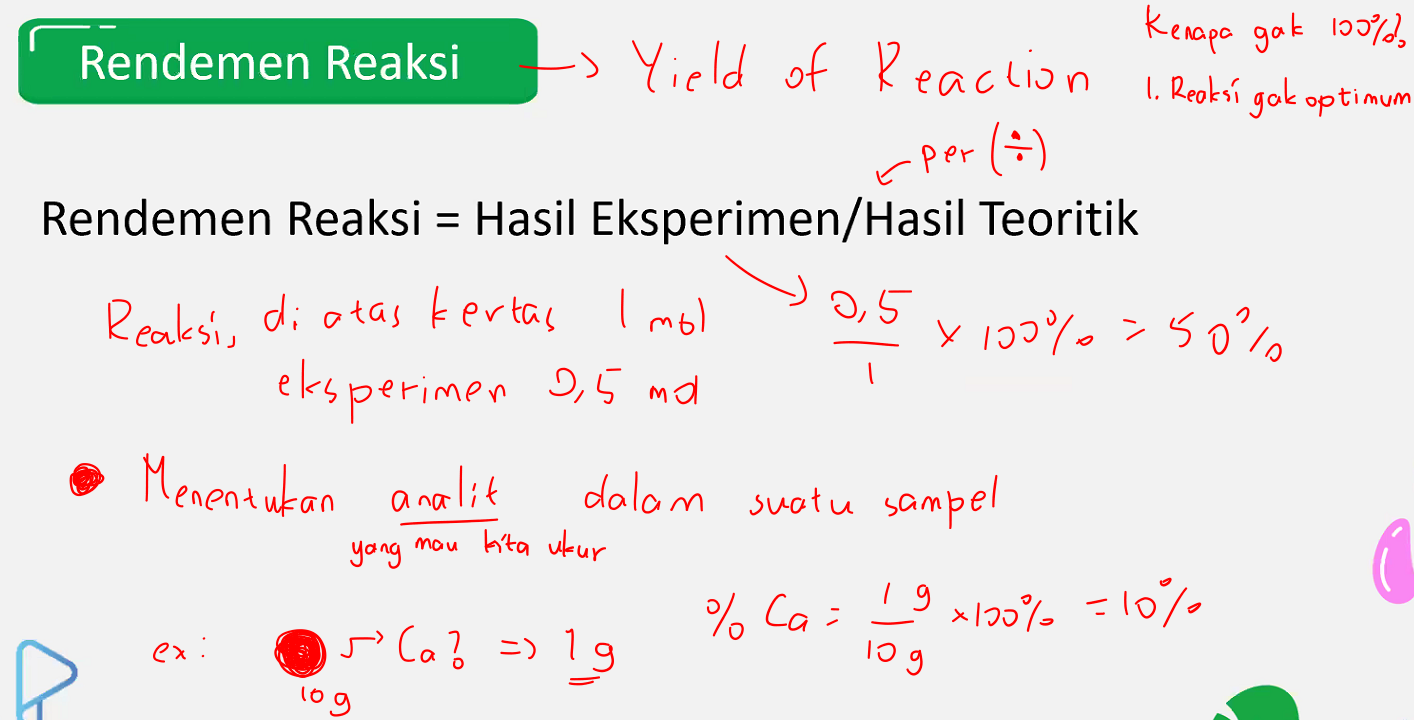 Rendemen Reaksi → Yield of Reaction
Kenapa gak 100%?
1. Reaksi gak optimum
per (÷)
Rendemen Reaksi = Hasil Eksperimen/Hasil Teoritik
Reaksi, di atas kertas 1 mol
eksperimen 0,5 mol
0,5/1 × 100% = 50%
Menentukan analit dalam suatu sampel
yang mau kita ukur
ex: 10 g → Ca? => 1 g
% Ca = 1 g/10 g × 100% = 10%